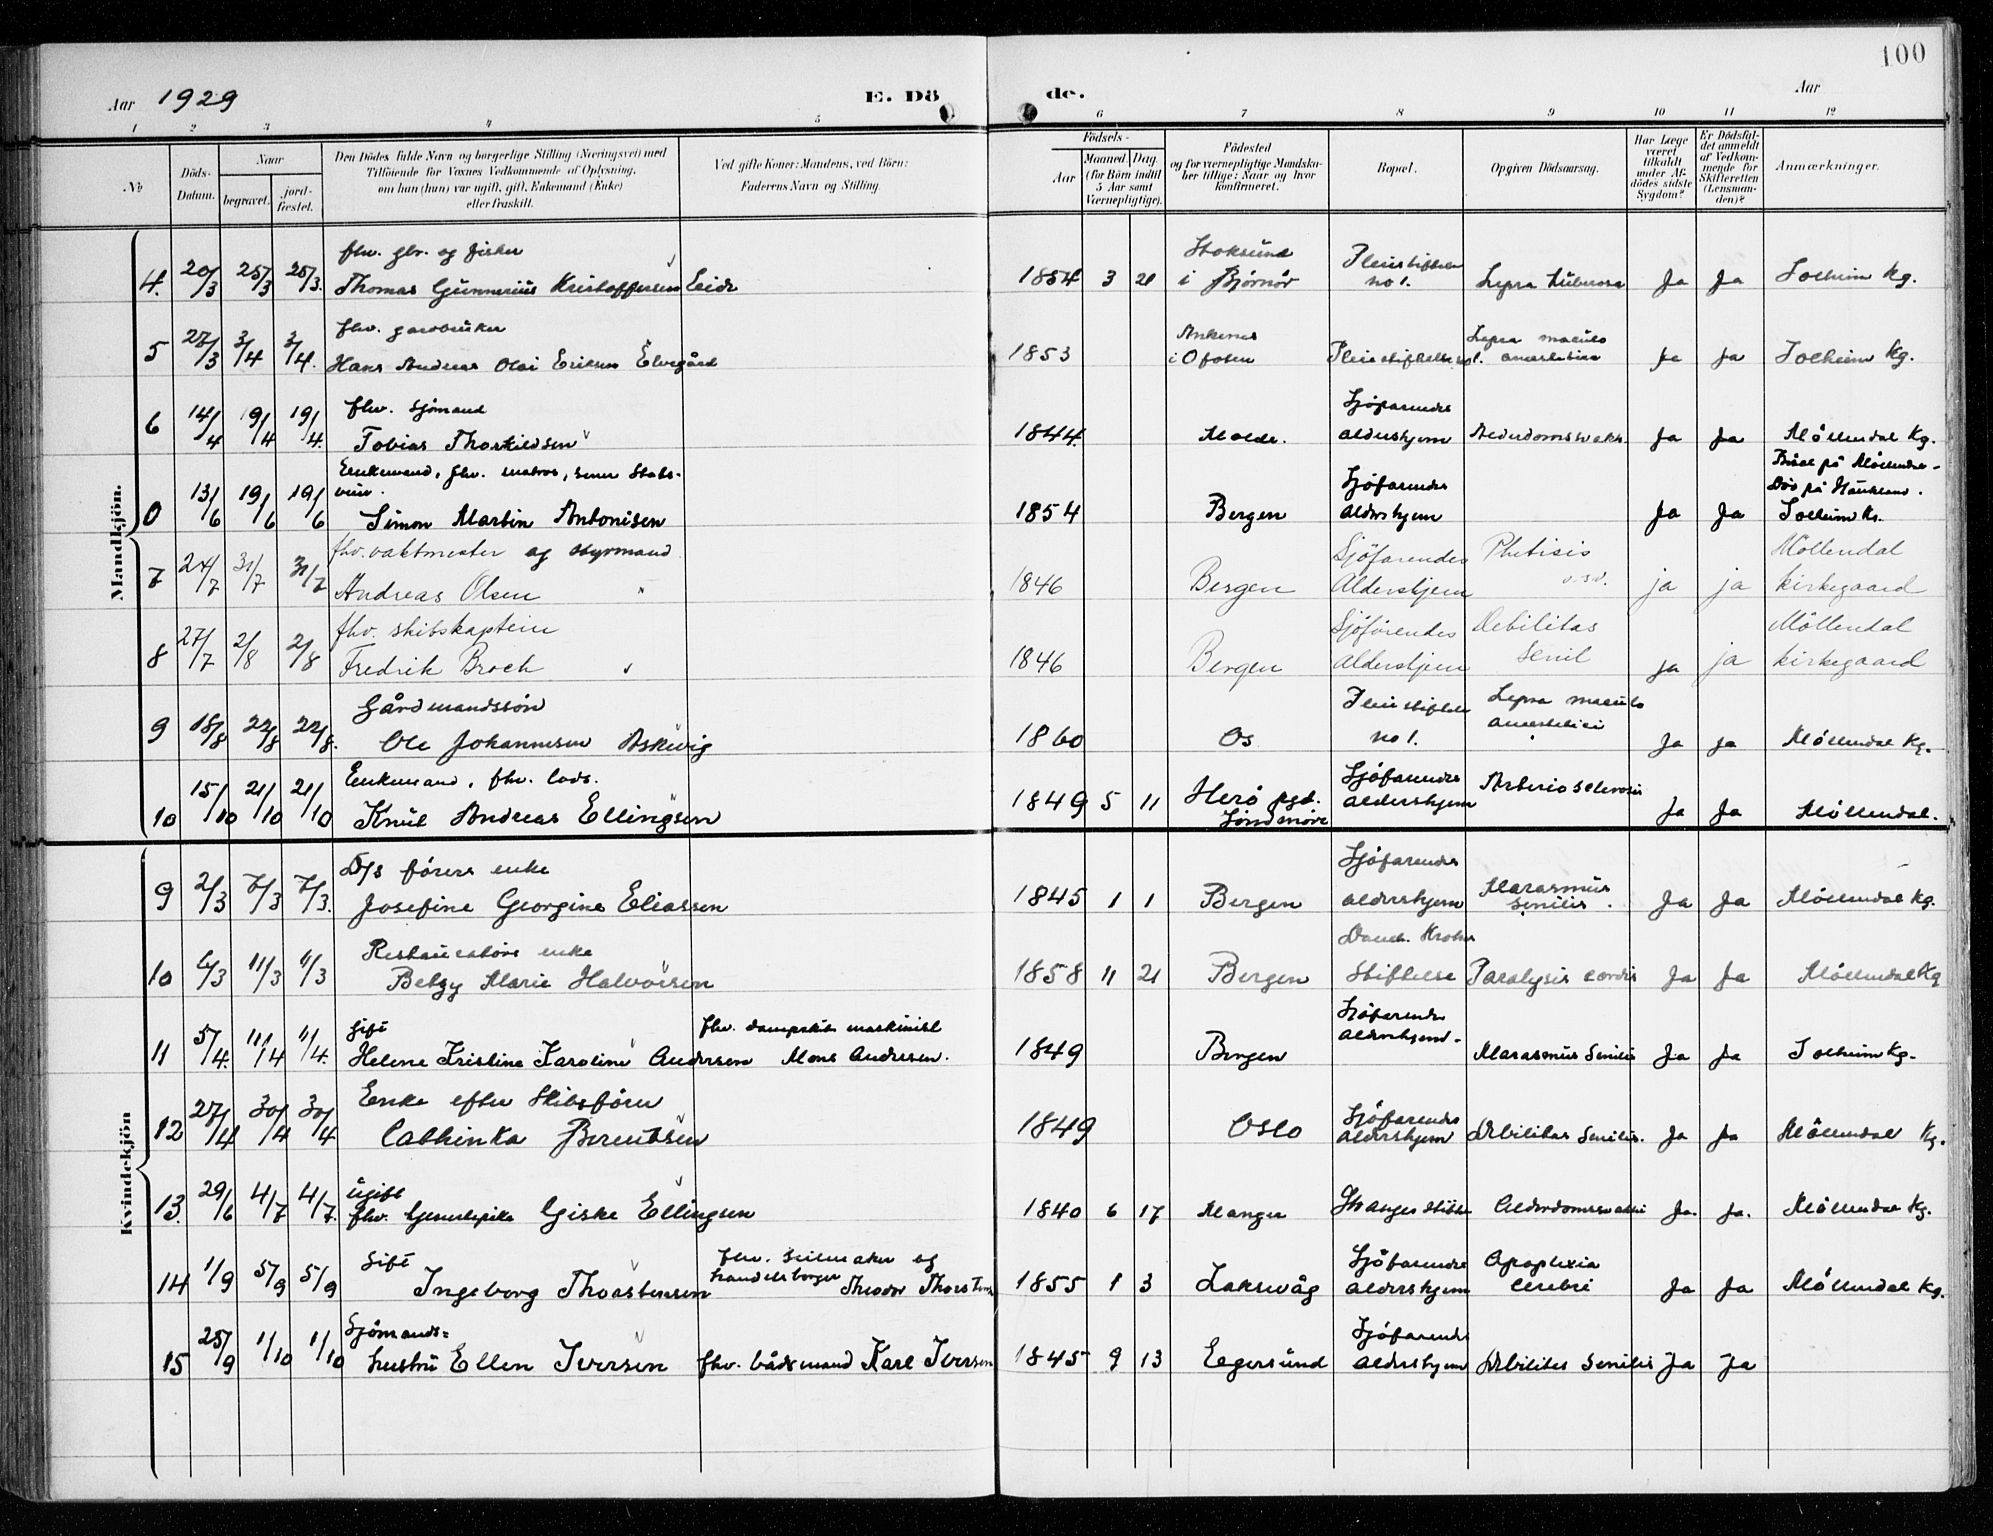 100
Aar 1929
E. Dö de.
Aar
1 2 3 4 5 6 7 8 9 10 11 12
No
Döds-Datum.
Naar
begravet.
jord-fæstet.
Den Dödes fulde Navn og borgerlige Stilling (Næringsvei) med
Tilföiende for Voxnes Vedkommende af Oplysning,
om han (hun) var ugift, gift, Enkemand (Enke)
eller fraskilt.
Ved gifte Koner: Mandens, ved Börn:
Faderens Navn og Stilling.
Födsels-
Aar
Maaned, Dag.
(for Börn indtil
5 Aar samt
Værnepligtige).
Födested
og for værnepligtige Mandska-
ber tillige: Naar og hvor
konfirmeret.
Bopæl.
Opgiven Dödsaarsag.
Har Læge
været
tilkaldt
under Af-
dödes sidste
Sygdom?
Er Dödsfal-
det anmeldt
af Vedkom-
mende for
Skifteretten
(Lensman-
den)?
Anmærkninger.
Mandkjön.
fhv. gbr. og fisker
4. 20/3 25/3 25/3. Thomas Gunnerius Kristoffersen Eide 1854 3 21 Stoksund i Bjørnør Pleiestiftelsen no 1. Lepra tuberosa Ja Ja Solheim kg.
fhv. gardbruker
5 27/3 3/4 3/4. Hans Andreas Olai Eriksen Elvegård 1853 Ankenes i Ofoten Pleiestiftelse no 1. Lepra maculo anæsthetica ja ja Solheim kg.
fhv. sjömand
6 14/4 19/4 19/4. Tobias Thorkildsen 1844. Molde. Sjöfarendes aldershjem Alderdomssvakh. Ja Ja Möllendal kg.
Enkemand, fhv. matros, senere
0 13/6 19/6 19/6 Simon Martin Antonisen 1854 Bergen Sjöfarendes aldershjem Ja Ja Solheim kg.
fhv. vaktmester og styrmand
7 24/7 31/7 31/7 Andreas Olsen 1846 Bergen Sjöfarendes Aldershjem Phtisis o.s.v. ja ja Möllendal kirkegaard
fhv. skibskaptein
8 27/7 2/8 2/8 Fredrik Broch 1846 Bergen Sjöfarendes Aldershjem Debilitas senil ja ja Möllendal kirkegaard
Gårdmandssön
9 18/8 22/8 22/8. Ole Johannesen Askvig 1860 Os Pleiestiftelse no 1. Lepra maculo anæsthetica Ja ja Möllendal kg.
Enkemand, fhv. lods.
10 15/10 21/10 21/10 Knut Andreas Ellingsen 1849 5 11 Herö pgd. Söndmöre Sjöfarendes aldershjem Arteriosclerosis Ja Ja Möllendal.
Kvindekjön
D/s förers enke
9 2/3 7/3 7/3. Josefine Georgine Eliassen 1845 1 1 Bergen Sjöfarendes aldershjem Marasmus senilis. Ja Ja Möllendal kg.
Restauratörs enke
10 6/3 11/3 11/3 Betzy Marie Halvorsen 1858 11 21 Bergen Danck. Krohns Stiftelse Paralysis cordis Ja Ja Möllendal kg
Gift
11 5/4. 11/4 11/4. Helene Kristine Karoline Andersen fhv. dampskibsmaskinist Mons Andersen. 1849 Bergen Sjöfarendes aldershjem. Marasmus senilis Ja Ja Solheim kg.
Enke efter skibsförer
12 27/4 30/4 30/4 Cathinka Berentsen 1849 Oslo Sjöfarendes aldershjem Debilitas senilis. Ja Ja Möllendal kg.
ugift
13. 29/6 4/7 4/7. fhv. tjenestepike Giske Ellingsen 1840 6 17 Manger Stranges stiftelse Alderdomssvakhet Ja. Ja. Möllendal kg.
Gift
14 1/9 5/9 5/9 Ingeborg Thorstensen fhv. seilmaker og handelsborger Theodor Thorstensen 1855 1 3 Laksevåg Sjöfarendes aldershjem Apoplexia cerebri Ja Ja Möllendal kg.
Sjömands=
15 25/9 1/10 1/10 hustru Ellen Iversen fhv. bådsmand Karl Iversen 1845 9 13 Egersund Sjöfarendes aldershjem Debilitas senilis Ja Ja